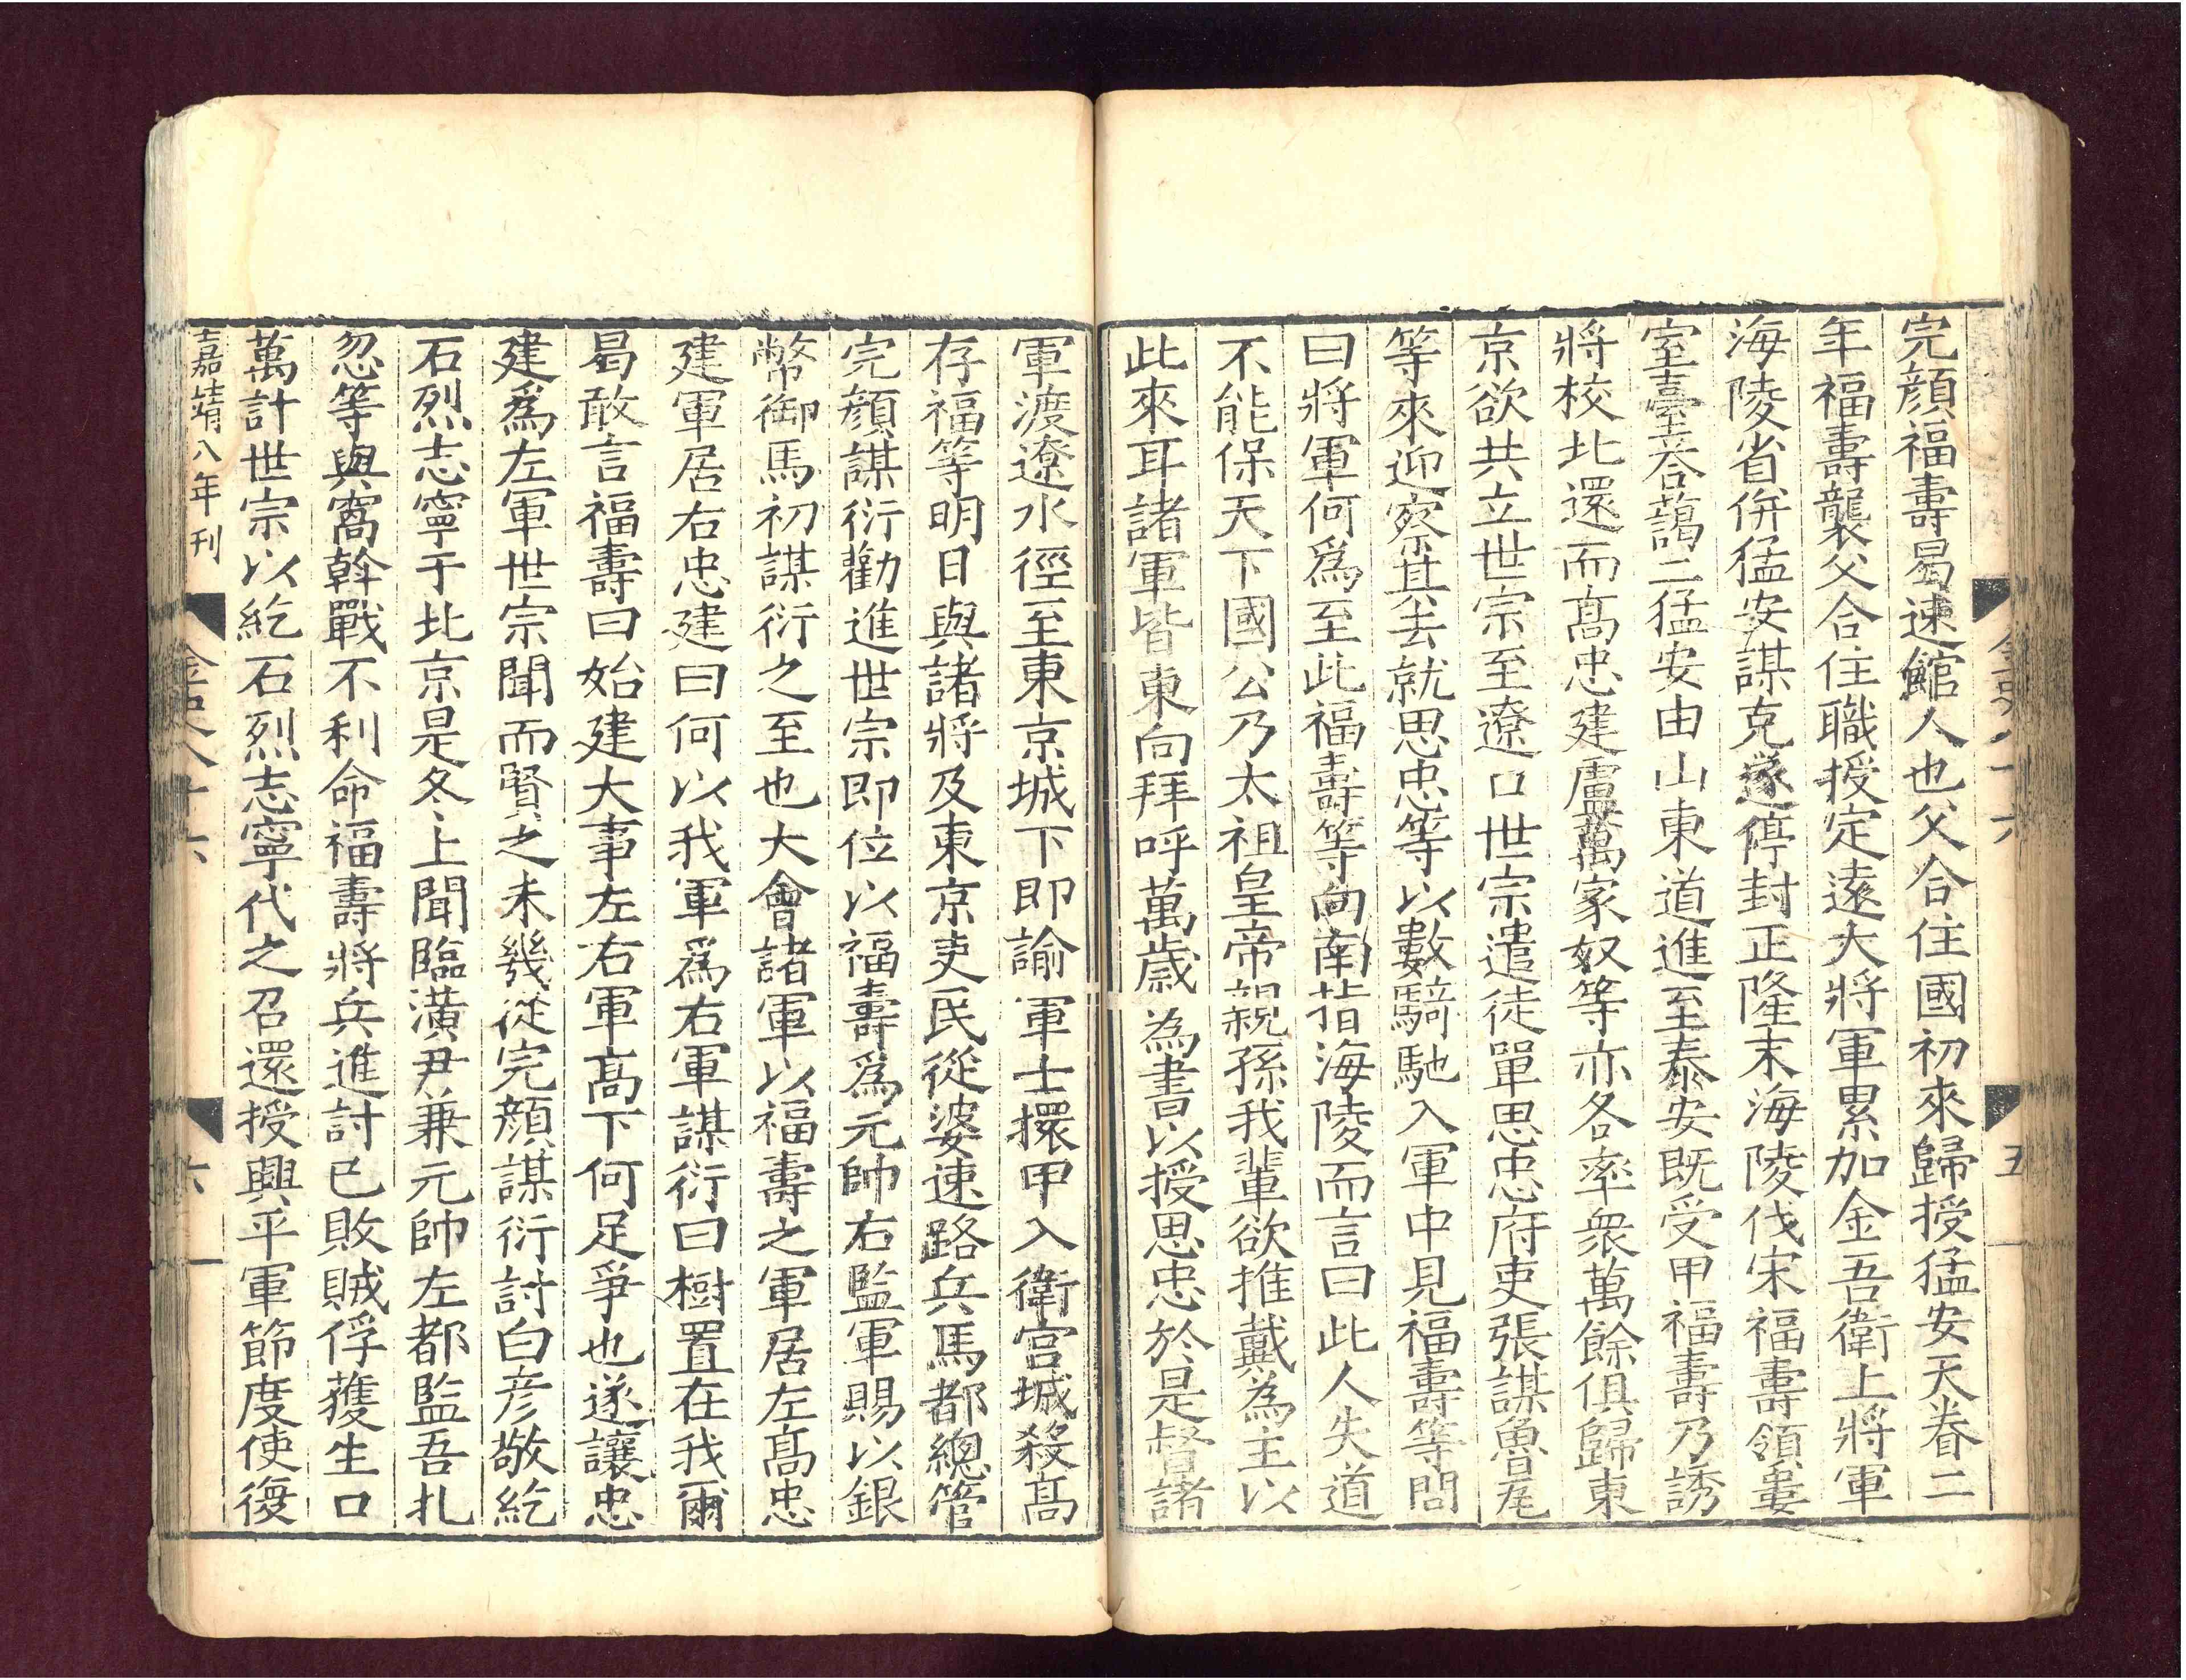 完顔福壽曷速館人也父合住國初來歸授猛安天眷二
年福壽襲父合住職授定遠大將軍累加金吾衛上將軍
海陵省併猛安謀克遂停封正隆末海陵伐宋福壽領婁
室臺荅藹二猛安由山東道進至泰安既受甲福壽乃誘
將校北還而髙忠建盧萬家奴等亦各率衆萬餘俱歸東
京欲共立世宗至遼口世宗遣徒單思忠府吏張謀魯尾
等來迎察其去就思忠等以數騎馳入軍中見福壽等問
曰將軍何爲至此福壽等向南指海陵而言曰此人失道
不能保天下國公乃太祖皇帝親孫我輩欲推戴為主以
此來耳諸軍皆東向拜呼萬歳為書以授思忠於是督諸
軍渡遼水徑至東京城下即諭軍士擐甲入衛宮城殺髙
存福等明日與諸將及東京吏民從婆速路兵馬都總管
完顔謀衍勸進世宗即位以福壽爲元帥右監軍賜以銀
幣御馬初謀衍之至也大會諸軍以福壽之軍居左髙忠
建軍居右忠建曰何以我軍爲右軍謀衍曰樹置在我爾
曷敢言福壽曰始建大事左右軍髙下何足爭也遂讓忠
建爲左軍世宗聞而賢之未幾從完顔謀衍討白彦敬紇
石烈志寧于北京是冬上聞臨潢尹兼元帥左都監吾扎
忽等與窩斡戰不利命福壽將兵進討已敗賊俘獲生口
萬計世宗以紇石烈志寧代之召還授興平軍節度使復
嘉靖八年刊
金史八十六
六